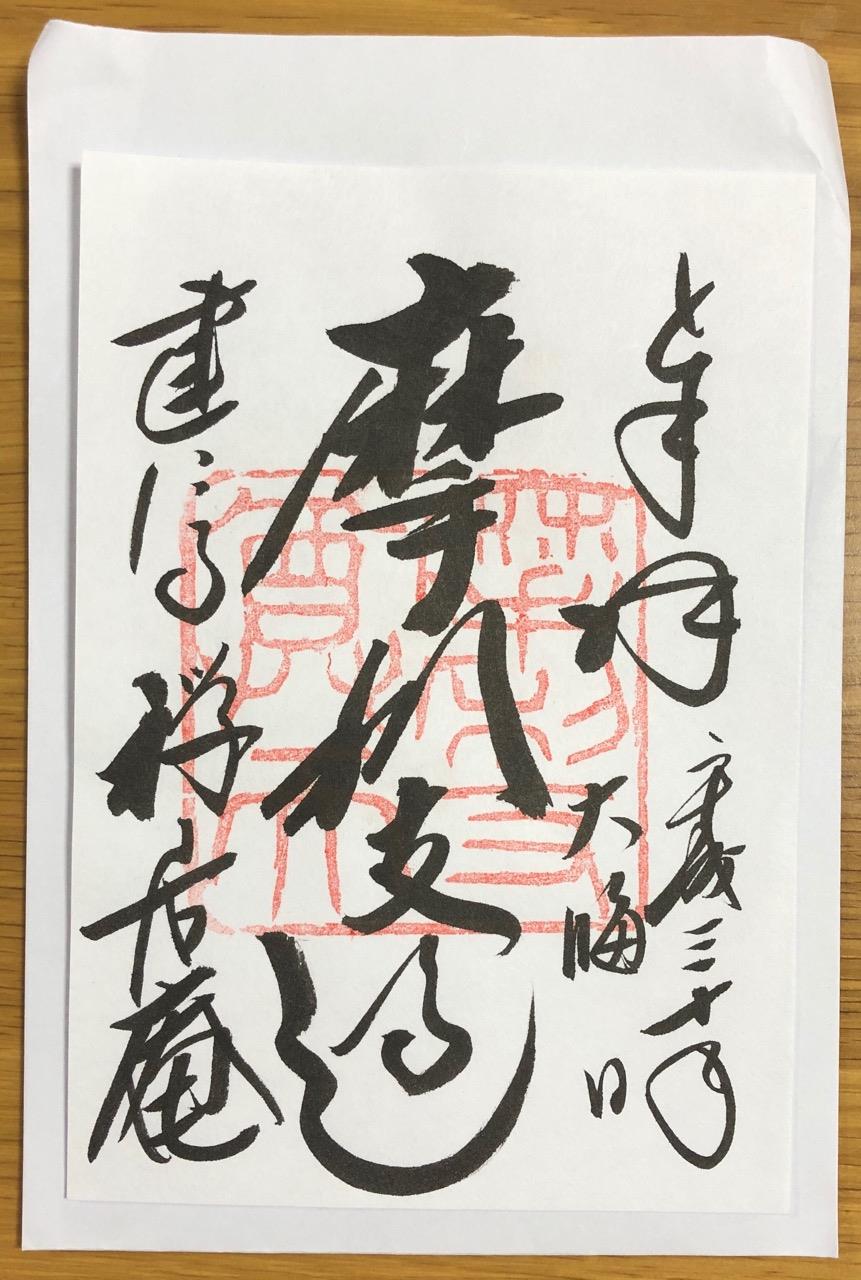 奉拝
平成三十年
大晦日
摩利支
建仁寺 禅居庵